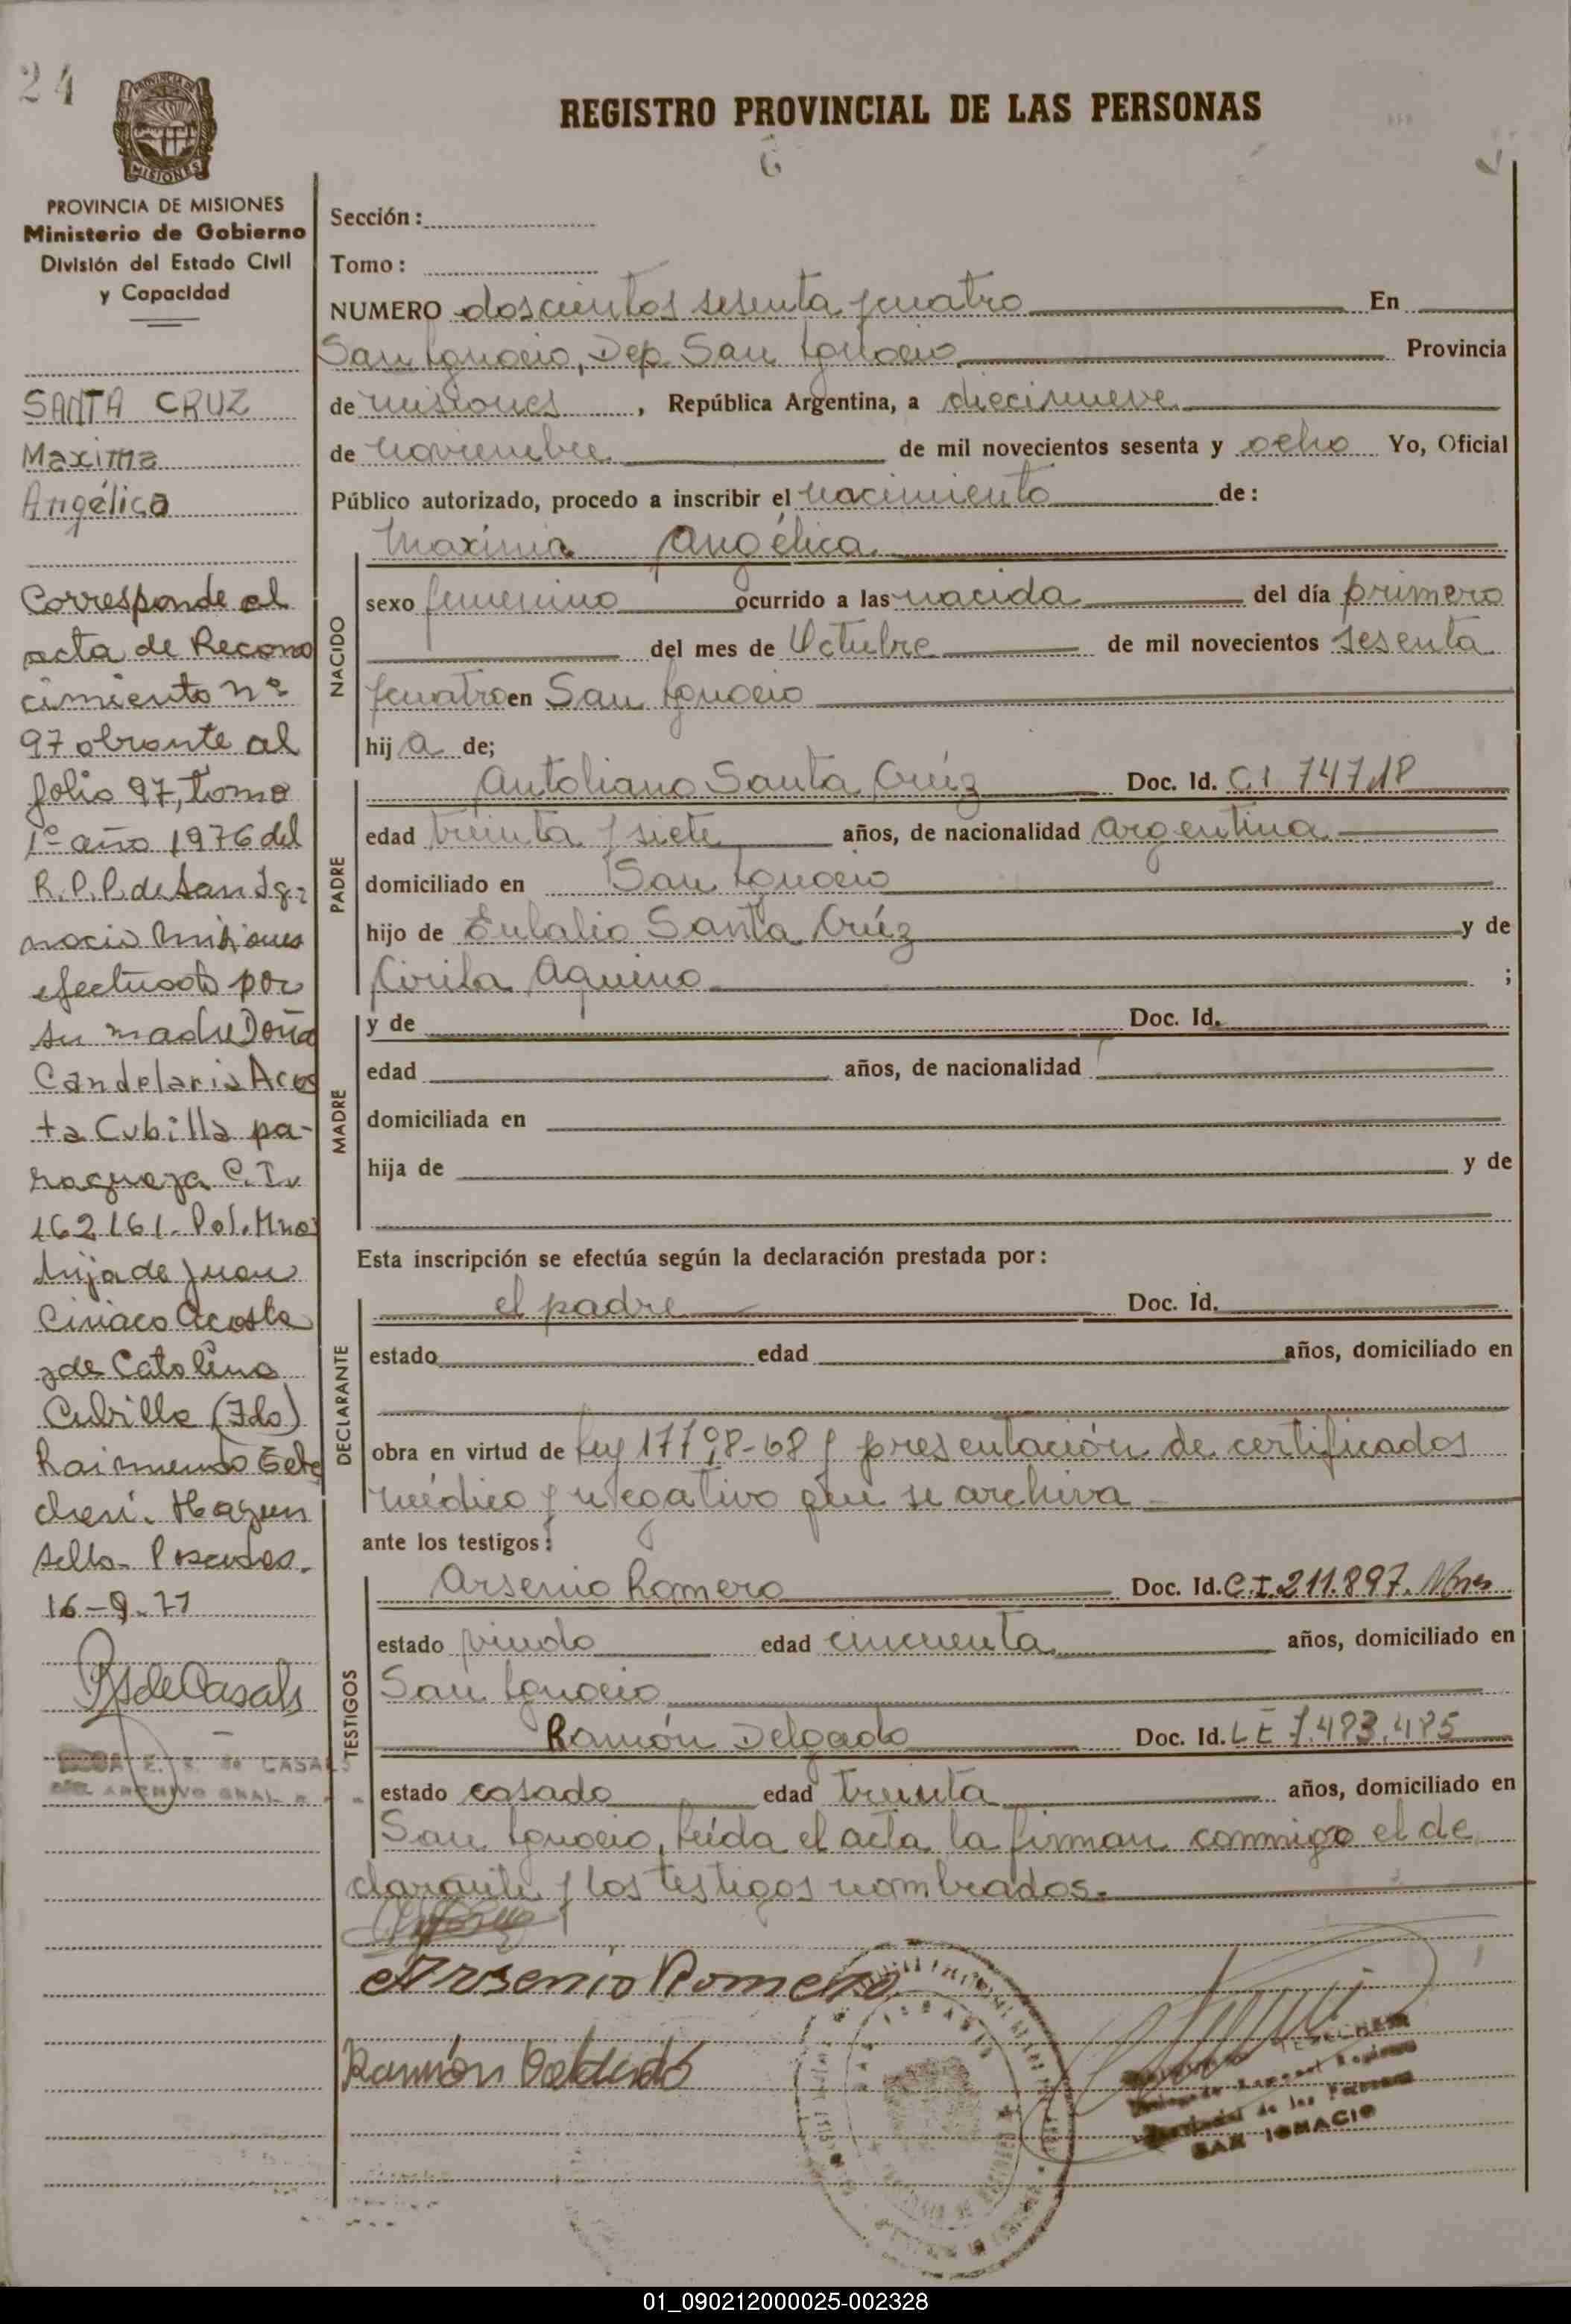 24
PROVINCIA DE
MISIONES
REGISTRO PROVINCIAL DE LAS PERSONAS
PROVINCIA DE MISIONES
Ministerio de Gobierno
División del Estado Civil
y Capacidad
SANTA CRUZ
Maxima
Angélica
Corresponde al
acta de Recono
cimiento nº
97 obrante al
folio 97, tomo
1º año 1976 del
R.P.P. de San Ig-
nacio Misiones
efectuado por
su madre Doña
Candelaria Acos
ta Cubilla pa-
raguaya C.I.
162161. Pol. Mnes
hija de Juan
Ciriaco Acosta
y de Catalina
Cubilla (Fdo)
Raimundo
Hay un
sello. Posadas.
16-9-77
RS de Casals
CASALS
ARCHIVO GRAL.
Sección:
Tomo:
NUMERO doscientos sesenta y cuatro En
San Ignacio, Dep. San Ignacio Provincia
de misiones, República Argentina, a diecinueve
de noviembre de mil novecientos sesenta y ocho Yo, Oficial
Público autorizado, procedo a inscribir el nacimiento de:
NACIDO
Maxima Angélica
sexo femenino ocurrido a las nacida del día primero
del mes de Octubre de mil novecientos sesenta
y cuatro en San Ignacio
hija de;
PADRE
Antoliano Santa Crúz Doc. Id. C I 74718
edad treinta y siete años, de nacionalidad argentina
domiciliado en San Ignacio
hijo de Eulalio Santa Crúz y de
Cirila Aquino ;
MADRE
y de Doc. Id.
edad años, de nacionalidad
domiciliada en
hija de y de
Esta inscripción se efectúa según la declaración prestada por:
DECLARANTE
el padre Doc. Id.
estado edad años, domiciliado en
obra en virtud de Ley 17798-68 y presentación de certificados
médico y negativo que se archiva
ante los testigos:
TESTIGOS
Arsenio Romero Doc. Id. C.I. 211.897. Mnes
estado viudo edad cincuenta años, domiciliado en
San Ignacio
Ramón Delgado Doc. Id. L E 7.483.485
estado casado edad treinta años, domiciliado en
San Ignacio, leída el acta la firman conmigo el de
clarante y los testigos nombrados.
Arsenio Romero
Ramón
SAN IGNACIO
01_090212000025-002328